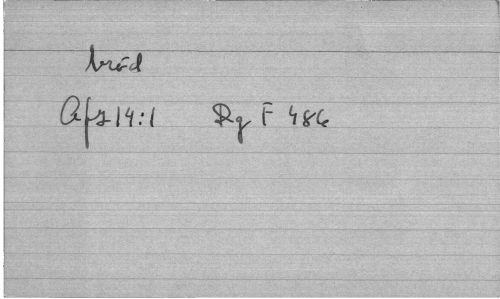 bröd
Afz 14:1 Rg F 486